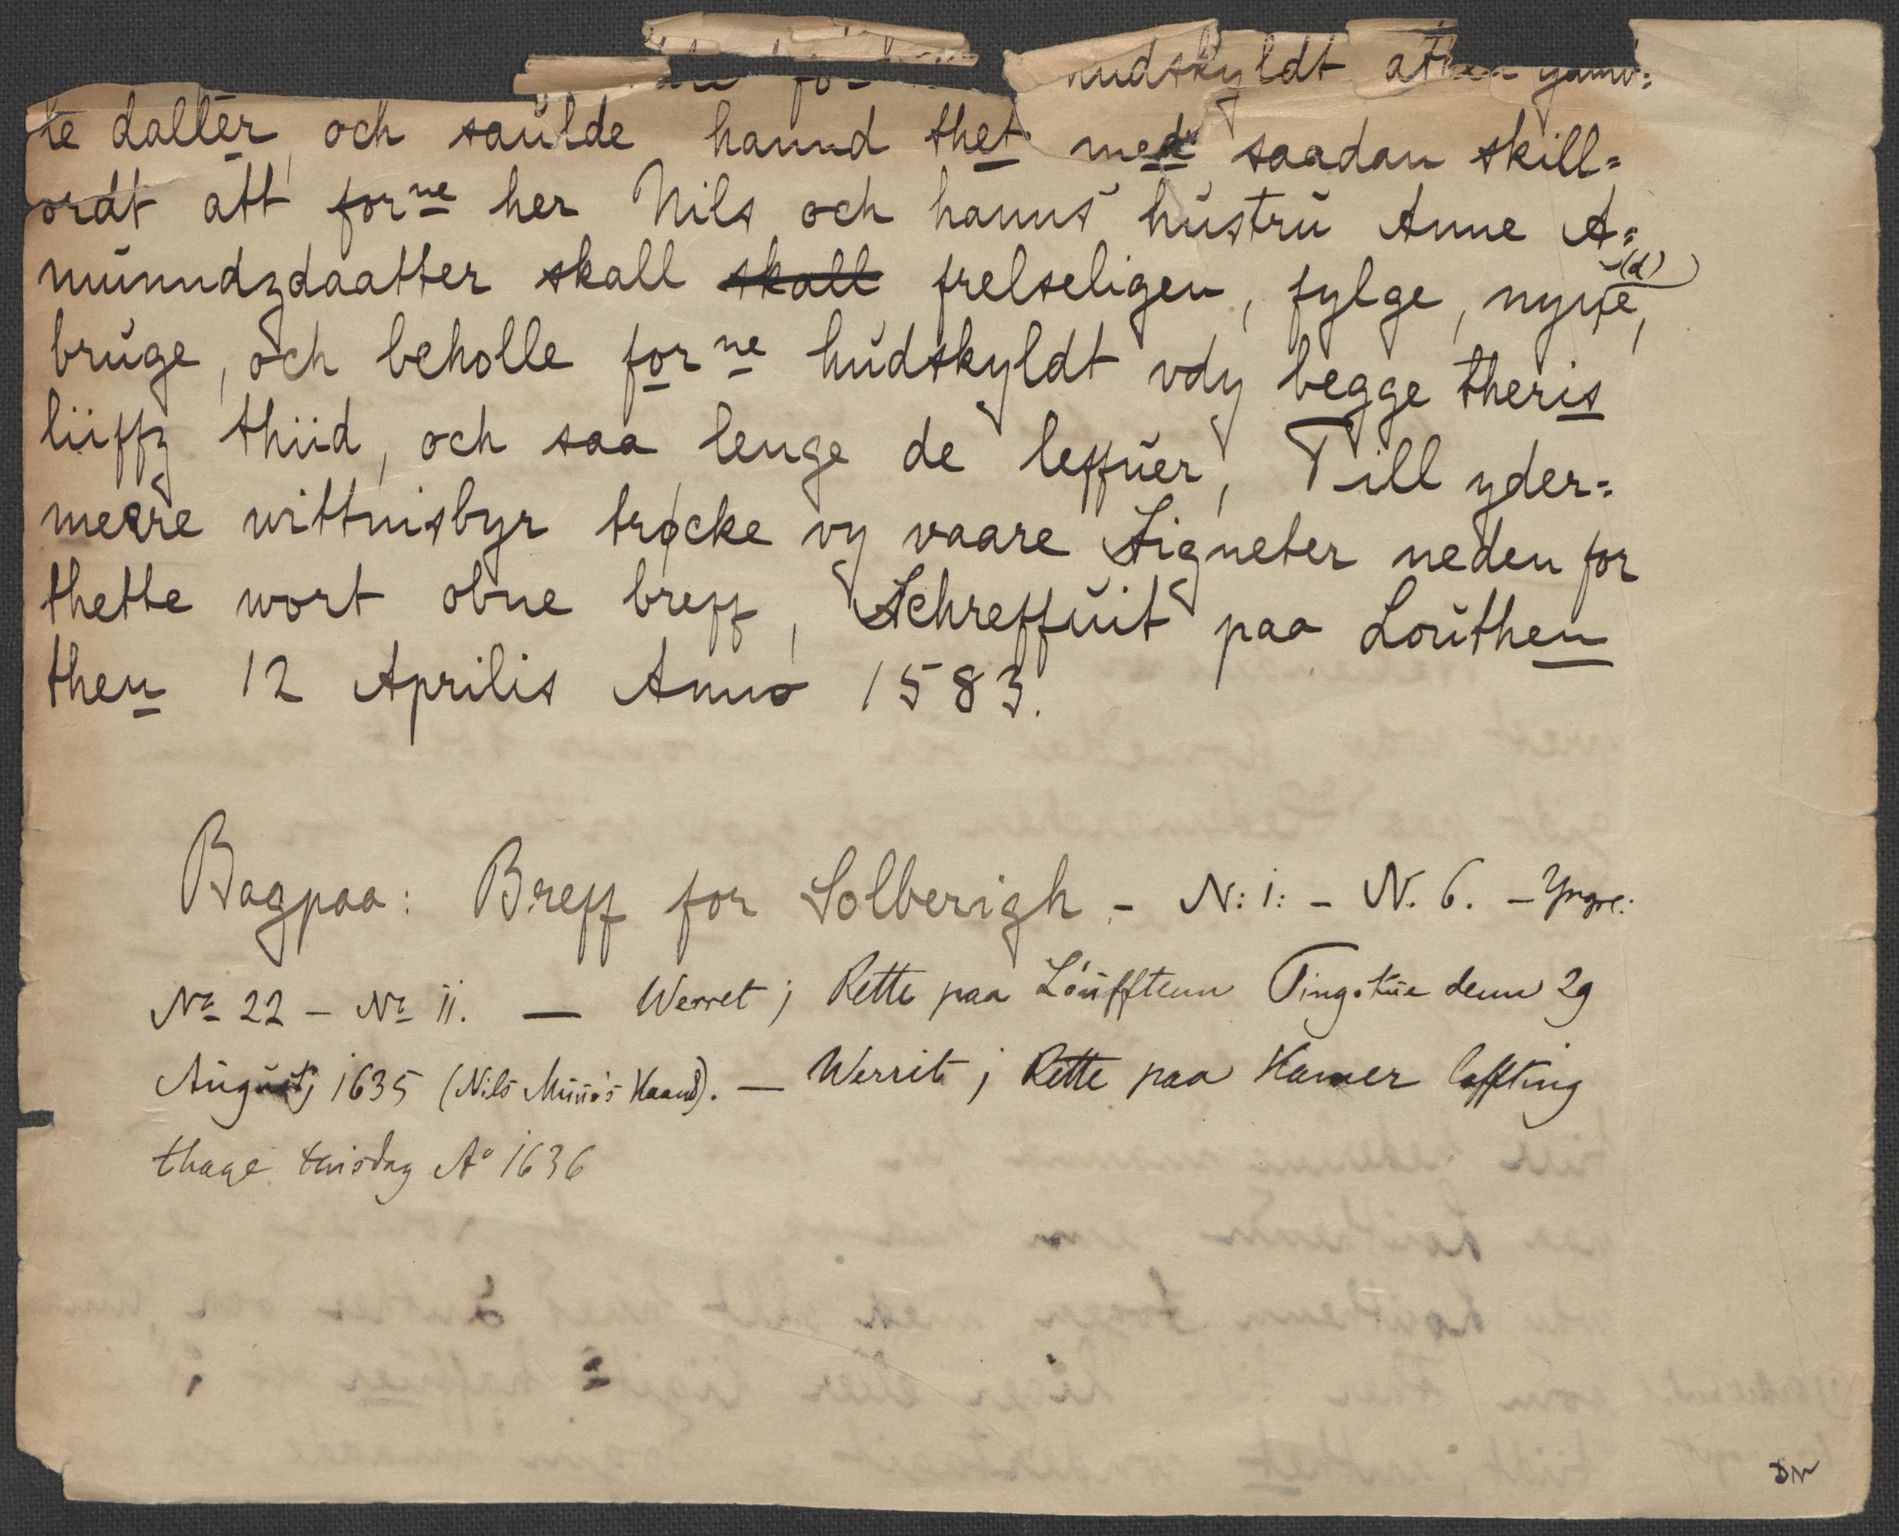 hudskyldt
te daller, och saulde hannd thet med saadan skill=
ordt att forne her Nils och hanns hustru Anne A=
munndzdaatter skall skall frelseligen, fylge, nyde, (d)
bruge, och beholle forne hudskyldt vdy begge theris
liiffz thiid, och saa lenge de leffuer, Till yder=
meere wittnisbyr trøcke vy vaare Signeter neden for
thette wort obne breff, Schreffuit paa Louthen
then 12 Aprilis Anno 1583.
Bagpaa: Breff for Solberigh - N: 1: - N. 6. - Yngre:
No 22 - No ii. — Werret j Rette paa Löufftenn Tingstue denn 29
Augustj 1635 (Nils Muus's Haand). — Werrit j Rette paa Hamer laffting
thage tiisdag Ao 1636
DN